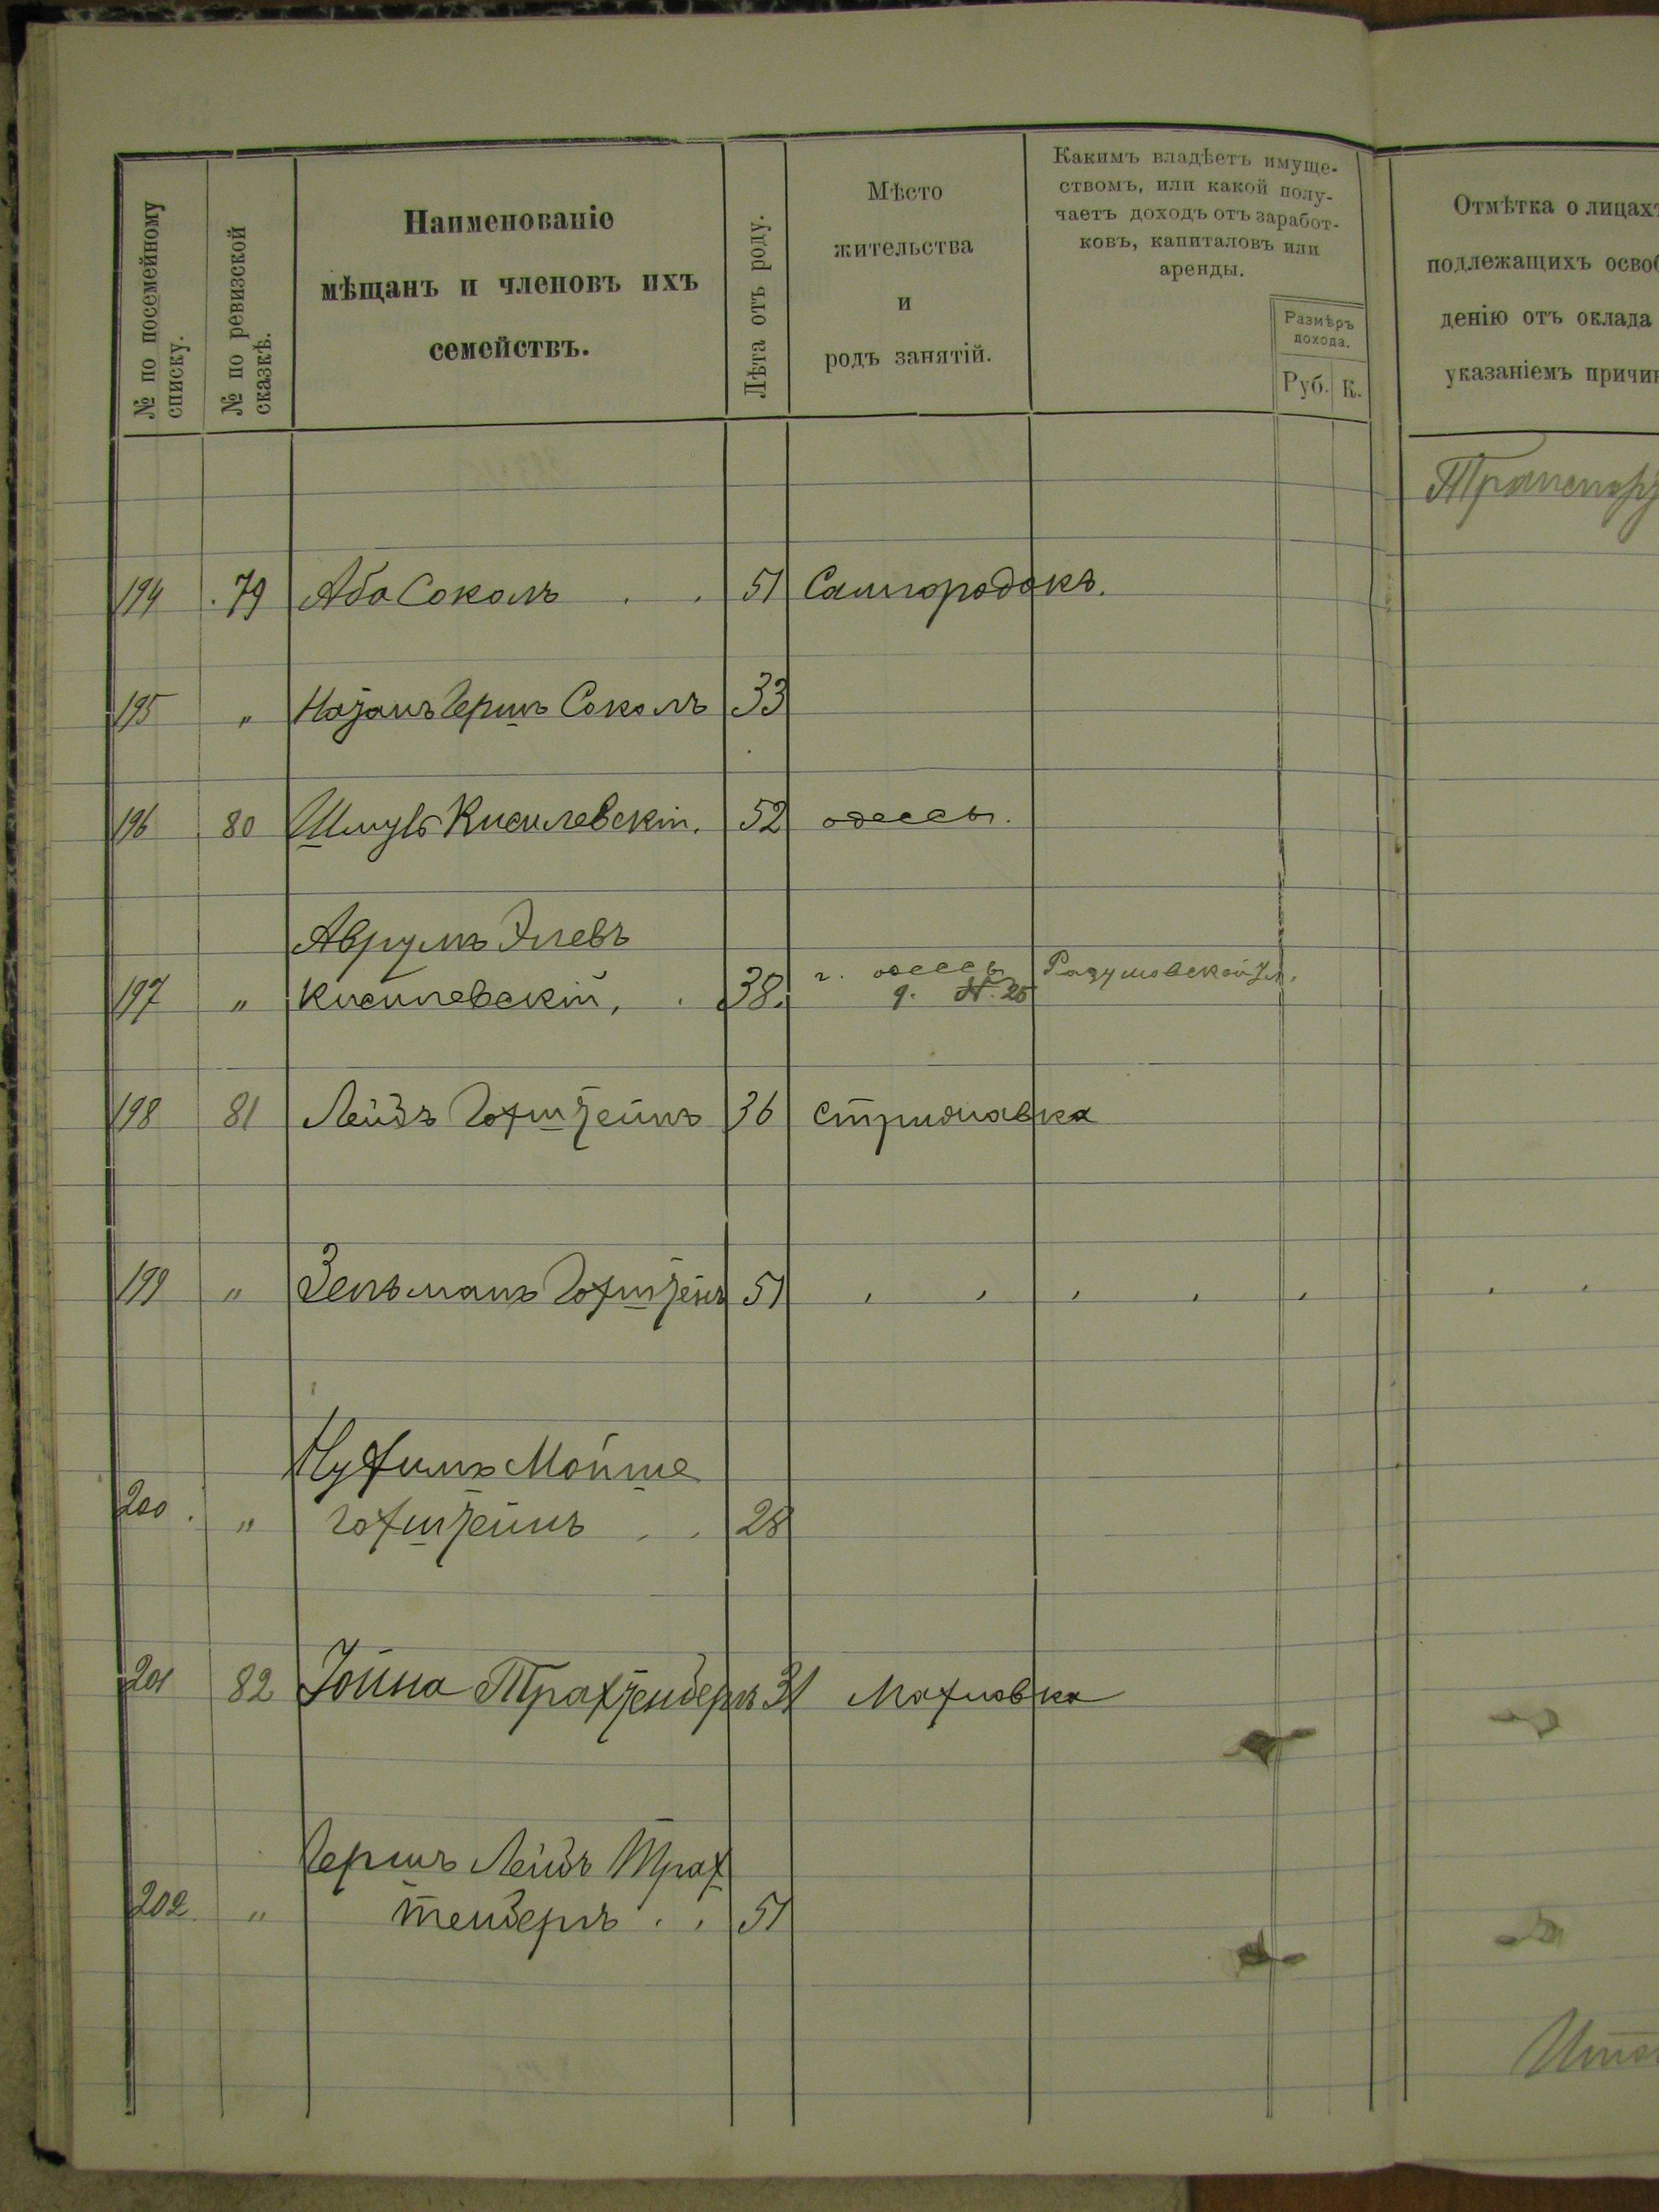 № по посемейному
списку.
№ по ревизской
сказкѣ.
Наименованіе
мѣщанъ и членовъ ихъ
семействъ.
Лѣта отъ роду.
Мѣсто
жительства
и
родъ занятій.
Какимъ владѣетъ имуще-
ствомъ, или какой полу-
чаетъ доходъ отъ заработ-
ковъ, капиталовъ или
аренды.
Размѣръ
дохода.
Руб. К.
Отмѣтка о лицахъ
подлежащихъ освоб
денію отъ оклада
указаніемъ причин
Транспорт
194 79 Аба Соколъ 51 Самгородокъ.
195 " Натанъ Гершъ Соколъ 33
196 80 Шмуль Кисилевскій. 52 одессы.
Аврумъ Элевъ
197 " Кисилевскій, 38. г. одессы Разумовской ул.
д. № 25
198 81 Лейбъ Гохштейнъ 36 Стрижавка
199 " Зельманъ Гохштейнъ 51
Нухимъ Мойше
200 " Гохштейнъ 28
201 82 Іойна Трахтенберъ 31 Махновка
Гершъ Лейбъ Трах
202 " тенберъ 51
Итог